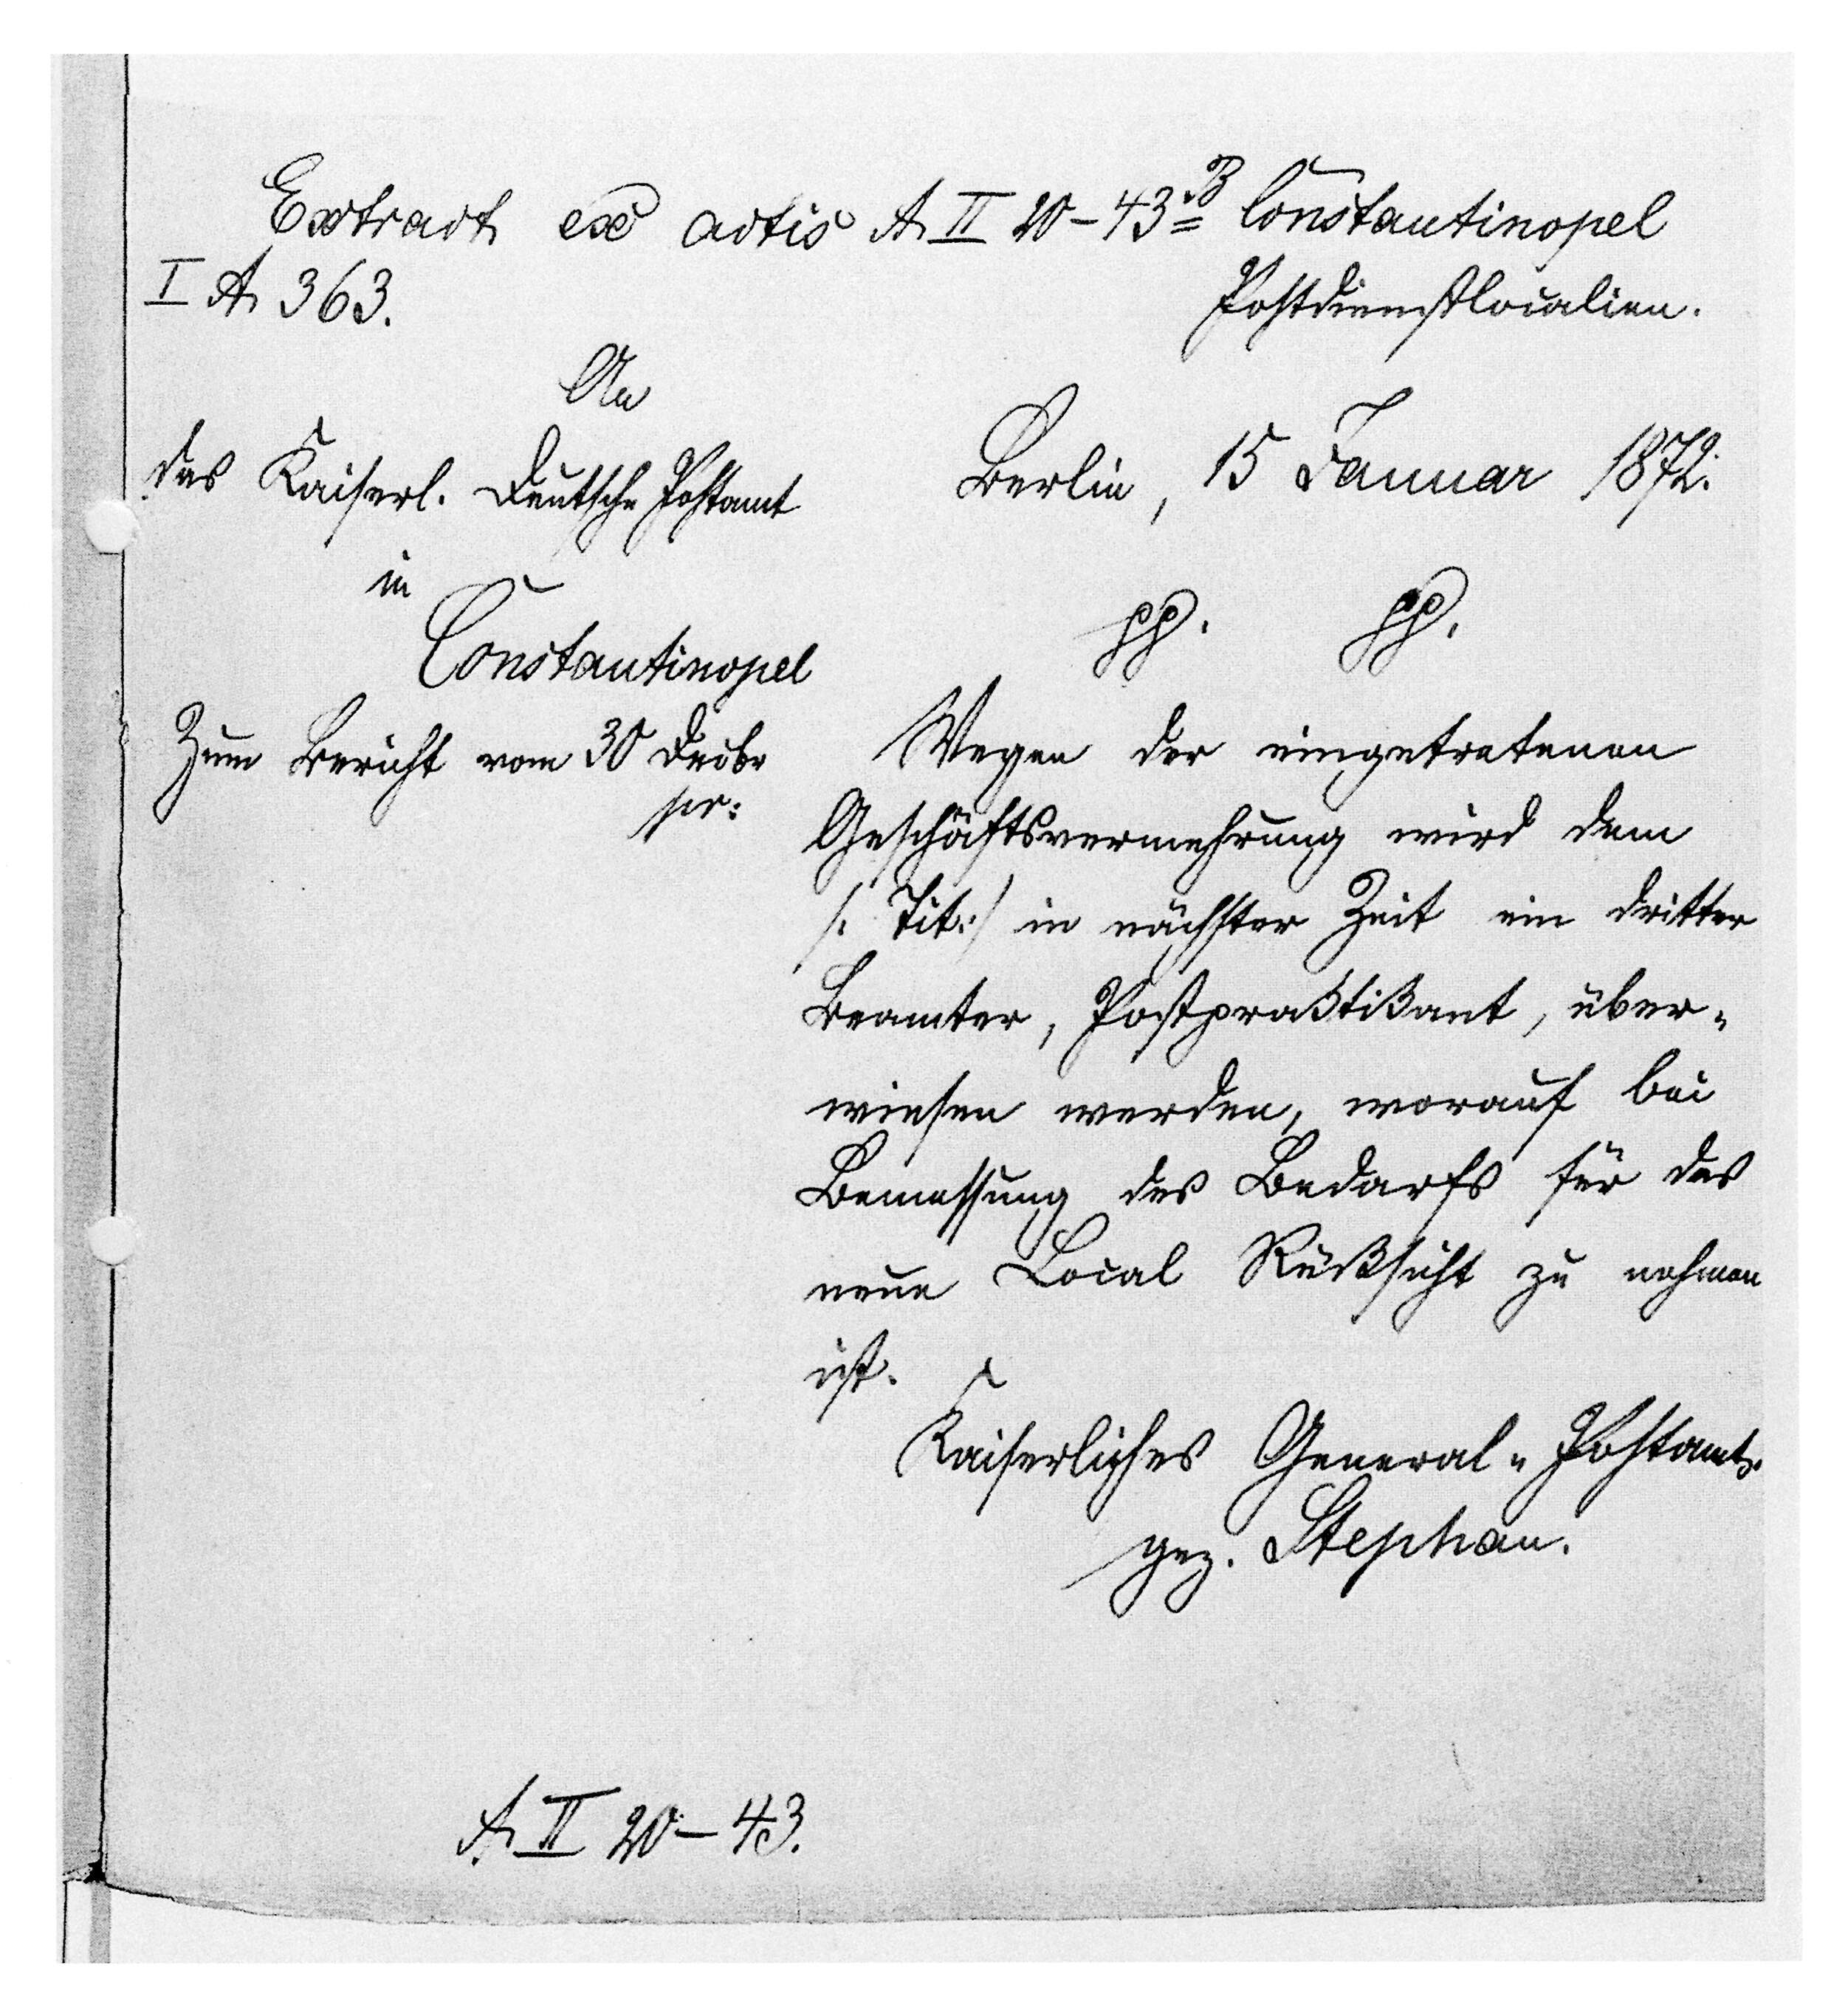 Extract ex actis A II 20-43B Constantinopel
I A 363.
Postdienstlocalien.
An
das Kaiserl. Deutsche Postamt
in
Constantinopel
Zum Bericht vom 30 Decbr
pr:
Berlin, 15 Januar 1872.
pp. pp.
Wegen der eingetretenen
Geschäftsvermehrung wird dem
/: Tit: / in nächster Zeit ein dritter
Beamter, Postpraktikant, über-
wiesen werden, worauf bei
Bemessung des Bedarfs für das
neue Local Rücksicht zu nehmen
ist.
Kaiserliches General-Postamt.
gez. Stephan.
A II 20-43.